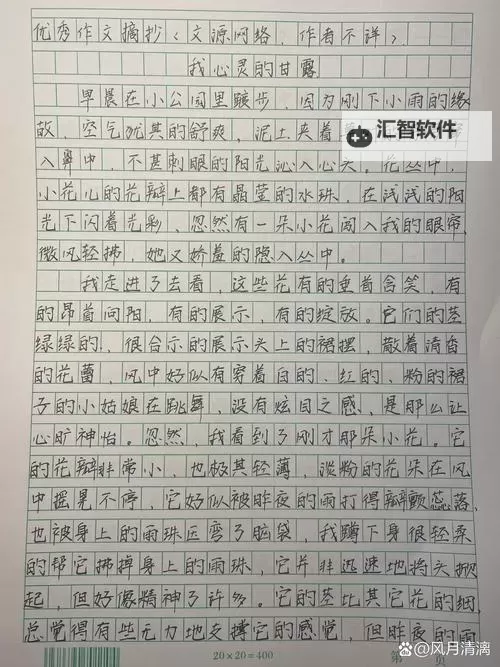 优秀作文摘抄〈文源网络,作者不详〉.
我心灵的甘露
早晨在小公园里踱步,因为刚下小雨的缘
故,空气犹其的舒爽,泥土夹着
汇智软件
入鼻中,不甚刺眼的阳光沁入心头。花丛中,
小花儿的花瓣上都有晶莹的水珠,在浅浅的阳
光下闪着光彩,忽然有一朵小花闯入我的眼帘,
微风轻拂,她又娇羞的隐入丛中。
我走进了去看,这些花有的垂首含笑,有
的昂首向阳,有的展示,有的绽放。它们的茎
绿绿的,很合示的展示头上的裙摆,散着清香
的花蕾,风中好似有穿着白的、红的、粉的裙
子的小姑娘在跳舞,没有炫目之感,是那么让
心旷神怡。忽然,我看到了刚才那朵小花。它
的花瓣非常小,也极其轻薄,淡粉的花朵在风
中摇晃不停,它好似被昨夜的雨打得瓣颤蕊落,
也被身上的雨珠压弯了脑袋,我蹲下身很轻柔
的帮它拂掉身上的雨珠,它并非迅速地将头掀
起,但好像精神了许多。它的茎比其它花的细,
总觉得有些无力地支撑它的感觉,但昨夜的雨
20×20=400
第 页
@风月清漓